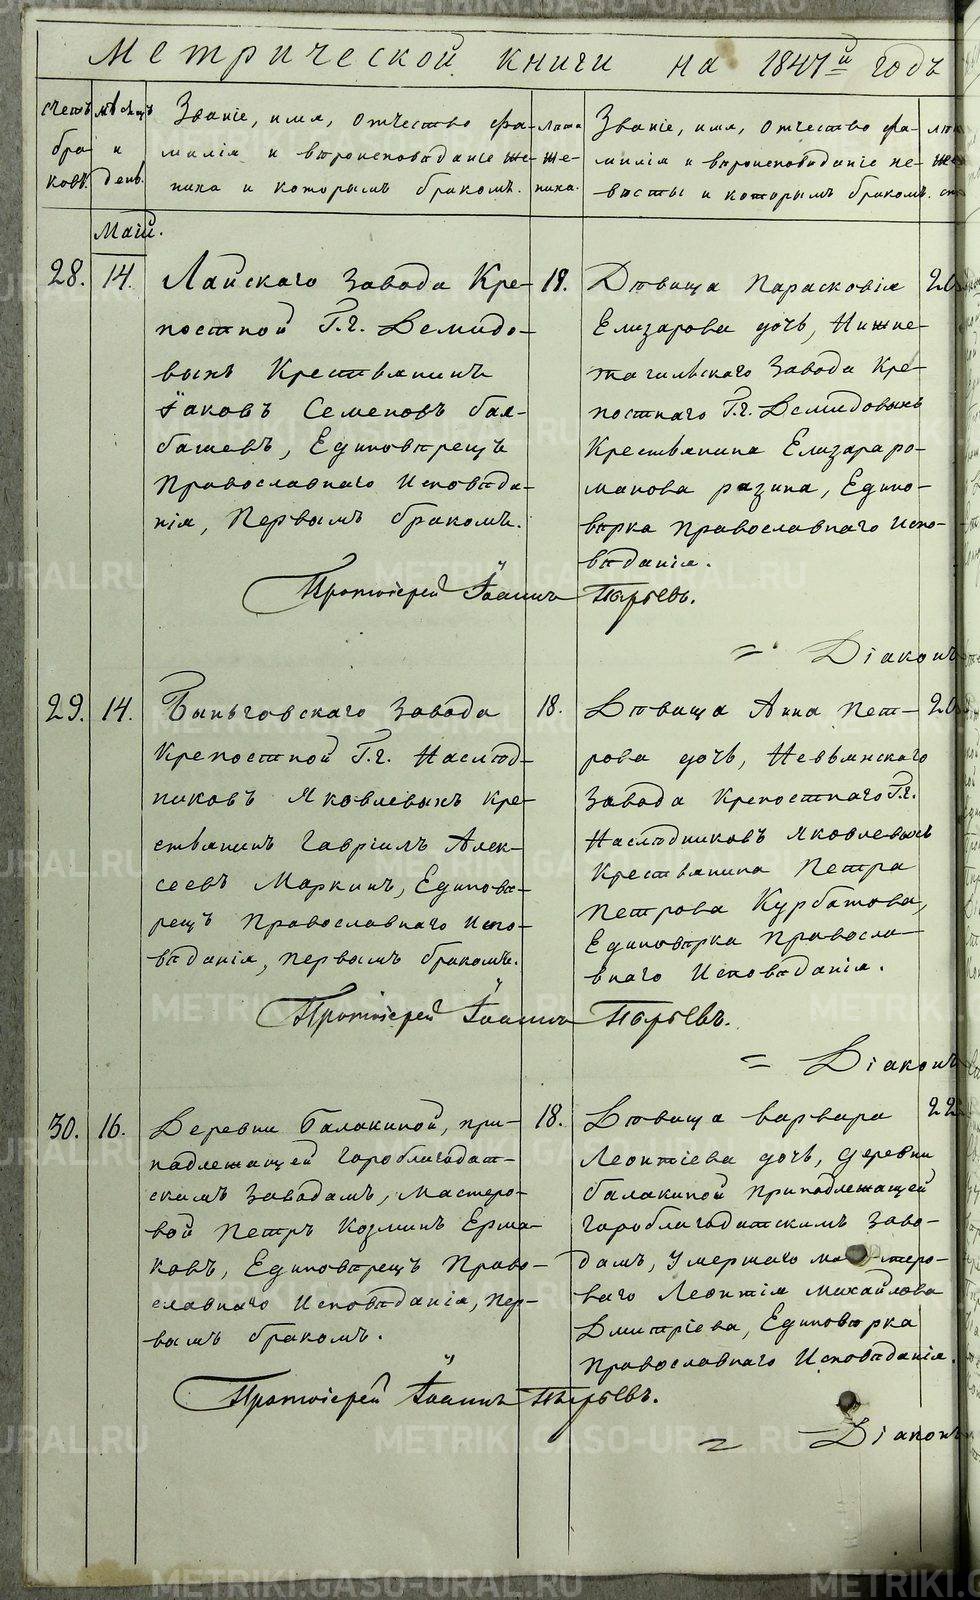 Метрической книги на 1847й годъ
счетъ браковъ.
мѣсяцъ и день.
Званіе, имя, отчество фа-
милія и вѣроисповѣданіе же-
ниха и которымъ бракомъ.
Лѣта
же-
ниха.
Званіе, имя, отчество фа-
милія и вѣроисповѣданіе не-
вѣсты и которымъ бракомъ.
Маій.
28.
14.
Лайскаго завода Кре-
постной Г.г. Демидо-
выхъ Крестьянинъ
Іаковъ Семеновъ бал-
башевъ, Единовѣрецъ
Православнаго Исповѣда-
нія, Первымъ бракомъ.
18.
Дѣвица Парасковія
Елизарова дочь, Нижне-
тагильскаго Завода Кре-
постнаго Г.г. Демидовыхъ
Крестьянина Елизара ро-
манова разина, Едино-
вѣрка Православнаго Испо-
вѣданія.
Протоіерей Іоаннъ Пырьевъ.
= Діаконъ
29.
14.
Быньговскаго Завода
Крепостной Г.г. Наслѣд-
никовъ Яковлевыхъ Кре-
стьянинъ Гавріилъ Алек-
сеевъ Маркинъ, Единовѣ-
рецъ Православнаго Испо-
вѣданія, первымъ бракомъ.
18.
Дѣвица Анна Пет-
рова дочь, Невьянскаго
Завода Крепостнаго Г.г.
Наслѣдниковъ Яковлевыхъ
Крестьянина Петра
Петрова Курбатова,
Единовѣрка Правосла-
внаго Исповѣданія.
Протоіерей Іоаннъ Пырьевъ.
= Діаконъ
30.
16.
Деревни Балакиной, при-
надлежащей Гороблагодат-
скимъ Заводамъ, мастеро-
вой Петръ Козминъ Ерма-
ковъ, Единовѣрецъ Право-
славнаго Исповѣданія, Пер-
вымъ бракомъ.
18.
Дѣвица варвара
Леонтіева дочь, деревни
балакиной Принадлежащей
Гороблагодатскимъ Заво-
дамъ, умершаго мастеро-
ваго Леонтія михайлова
Дмитріева, Единовѣрка
Православнаго Исповѣданія.
22
Протоіерей Іоаннъ Пырьевъ.
= Діаконъ
METRIKI.GASO-URAL.RU